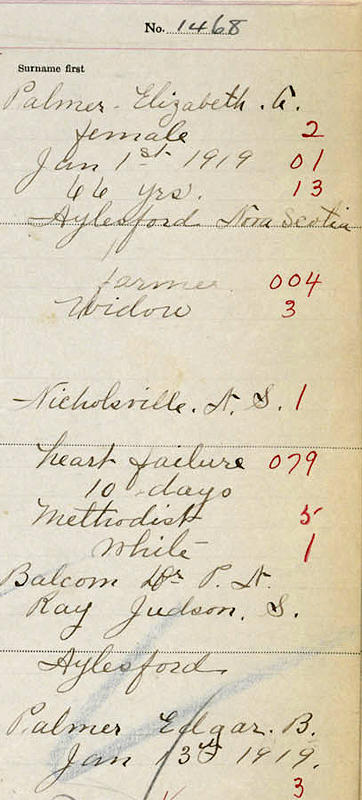 No. 1468
Surname first
Palmer - Elizabeth. A.
female 2
Jan 1st 1919 01
66 yrs. 13
Aylesford Nova Scotia
farmer 004
Widow 3
Nicholsville. N. S. 1
heart failure 079
10 days
Methodist 5
White 1
Balcom Dr P. N.
Ray Judson. S.
Aylesford
Palmer Edgar. B.
Jan 13th 1919.
3